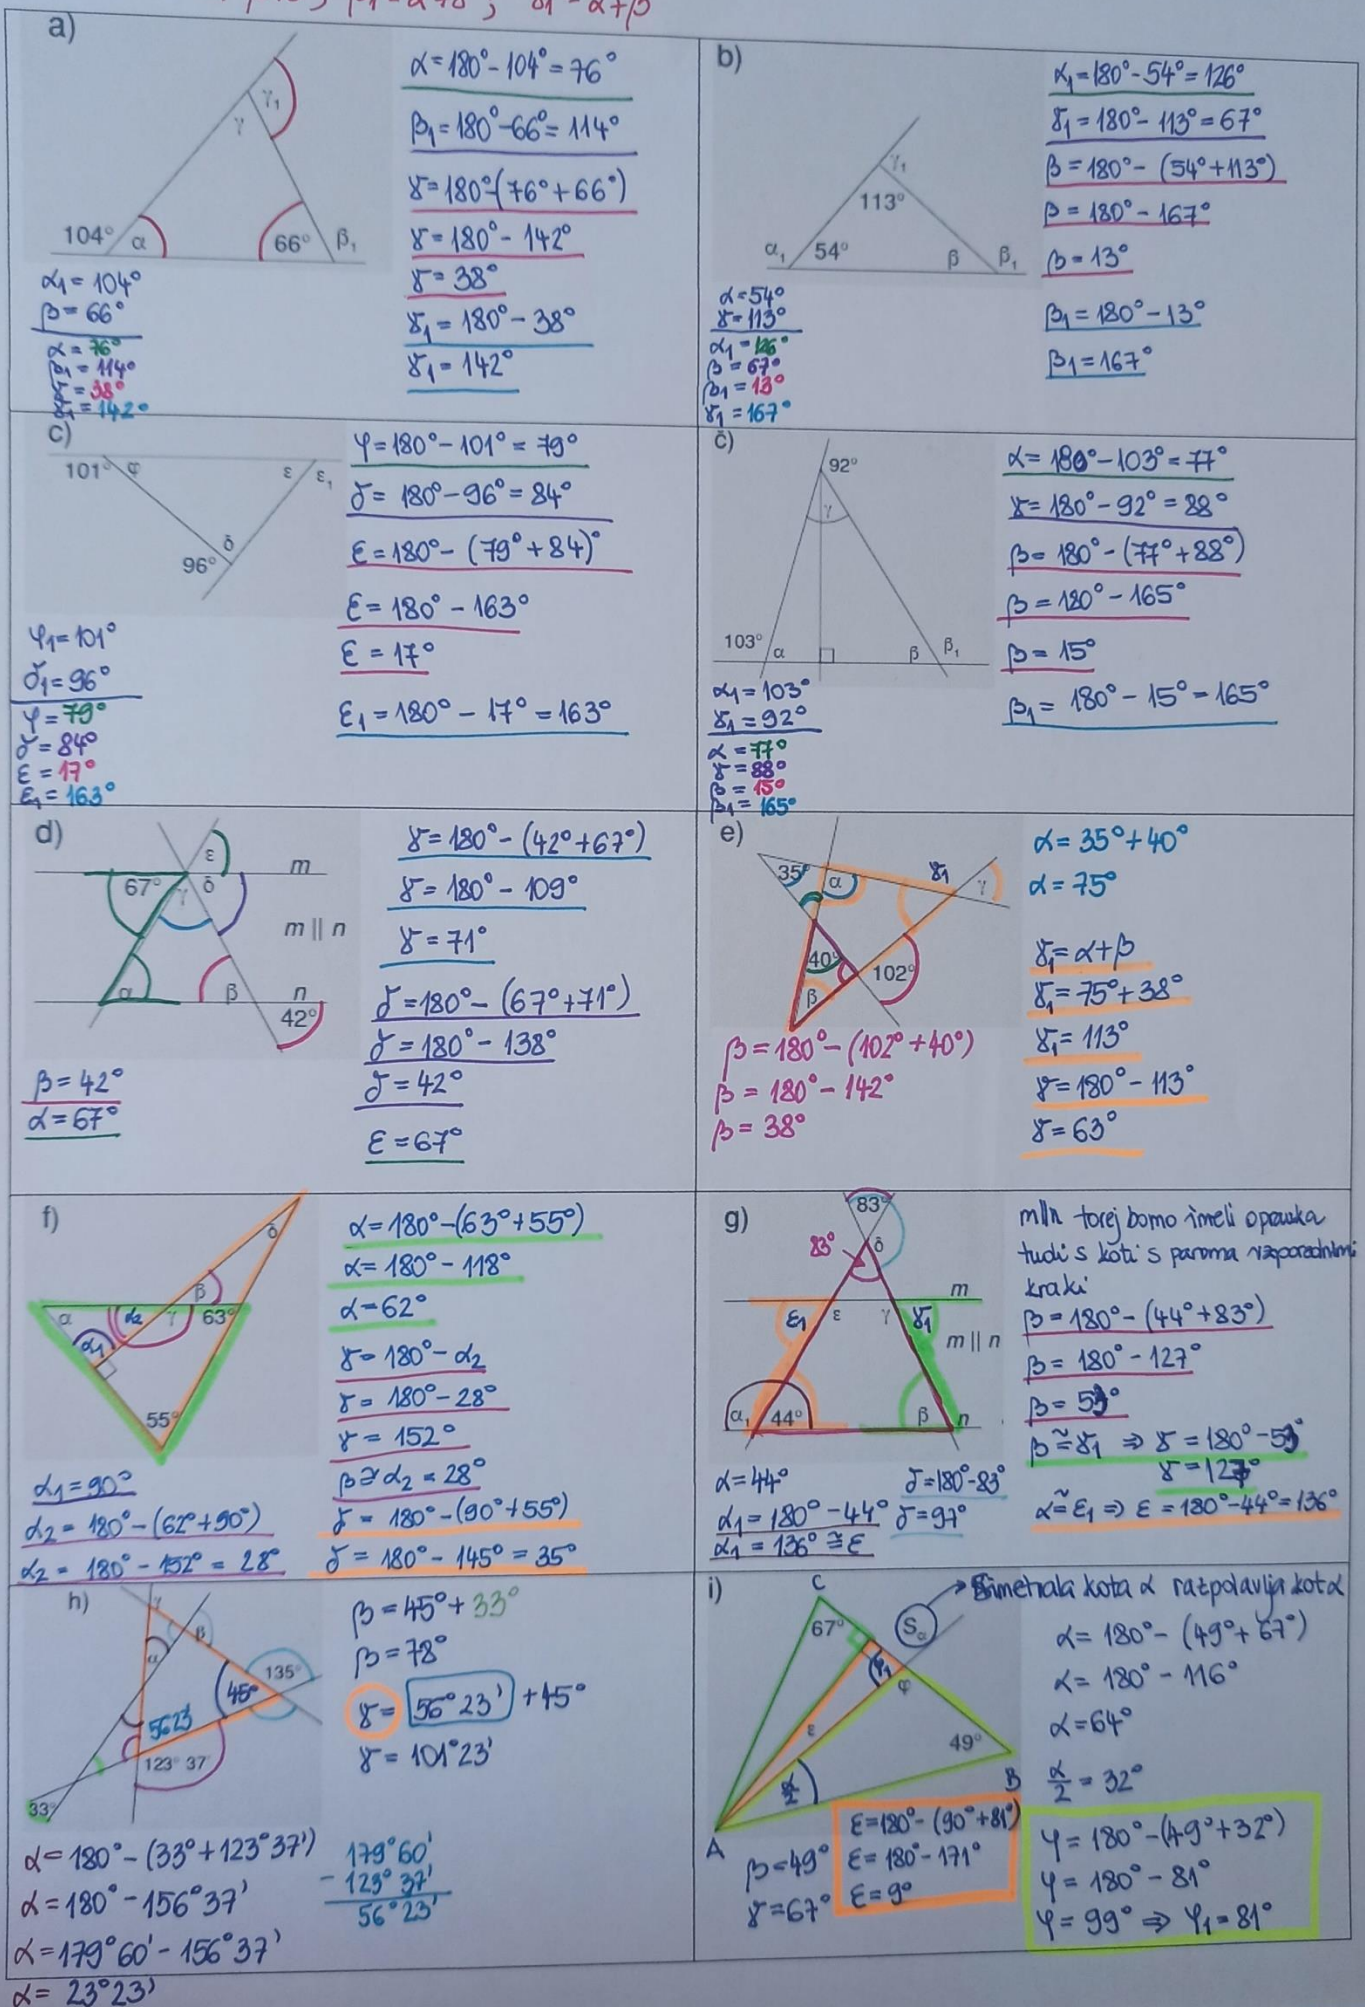 β1=α+γ ; γ1=α+β
a)
γ1
γ
104°
α
66°
β1
α1=104°
β=66°
α=76°
β1=114°
γ=38°
γ1=142°
α=180°-104°=76°
β1=180°-66°=114°
γ=180°-(76°+66°)
γ=180°-142°
γ=38°
γ1=180°-38°
γ1=142°
b)
γ1
113°
α1
54°
β
β1
α=54°
γ=113°
α1=126°
β=67°
β1=13°
γ1=167°
α1=180°-54°=126°
γ1=180°-113°=67°
β=180°-(54°+113°)
β=180°-167°
β=13°
β1=180°-13°
β1=167°
c)
101°
φ
ε
ε1
δ
96°
φ1=101°
δ1=96°
φ=79°
δ=84°
ε=17°
ε1=163°
φ=180°-101°=79°
δ=180°-96°=84°
ε=180°-(79°+84)°
ε=180°-163°
ε=17°
ε1=180°-17°=163°
č)
92°
γ
103°
α
β
β1
α1=103°
γ1=92°
α=77°
γ=88°
β=15°
β1=165°
α=180°-103°=77°
γ=180°-92°=88°
β=180°-(77°+88°)
β=180°-165°
β=15°
β1=180°-15°=165°
d)
ε
m
67°
γ
δ
m || n
α
β
n
42°
β=42°
α=67°
γ=180°-(42°+67°)
γ=180°-109°
γ=71°
δ=180°-(67°+71°)
δ=180°-138°
δ=42°
ε=67°
e)
35°
α
γ1
γ
40°
102°
β
β=180°-(102°+40°)
β=180°-142°
β=38°
α=35°+40°
α=75°
γ1=α+β
γ1=75°+38°
γ1=113°
γ=180°-113°
γ=63°
f)
δ
β
α
α2
γ
63°
α1
55°
α1=90°
α2=180°-(62°+90°)
α2=180°-152°=28°
α=180°-(63°+55°)
α=180°-118°
α=62°
γ=180°-α2
γ=180°-28°
γ=152°
β≅α2=28°
δ=180°-(90°+55°)
δ=180°-145°=35°
g)
83°
83°
δ
m
ε1
ε
γ
γ1
m || n
α1
44°
β
n
α=44°
α1=180°-44°
α1=136°≅ε
δ=180°-83°
δ=97°
m||n torej bomo imeli opravka
tudi s koti s paroma vzporednimi
kraki
β=180°-(44°+83°)
β=180°-127°
β=53°
β≅γ1 ⇒ γ=180°-53°
γ=127°
α≅ε1 ⇒ ε=180°-44°=136°
h)
γ
β
α
135°
45°
56 23'
123° 37'
33°
α=180°-(33°+123°37')
α=180°-156°37'
α=179°60'-156°37'
α=23°23'
β=45°+33°
β=78°
γ=56°23'+45°
γ=101°23'
179°60'
-123°37'
56°23'
i)
C
67°
Sα
φ1
φ
ε
49°
α/2
B
A
β=49°
γ=67°
ε=180°-(90°+81°)
ε=180°-171°
ε=9°
Simetrala kota α razpolavlja kot α
α=180°-(49°+67°)
α=180°-116°
α=64°
α/2=32°
φ=180°-(49°+32°)
φ=180°-81°
φ=99° ⇒ φ1=81°